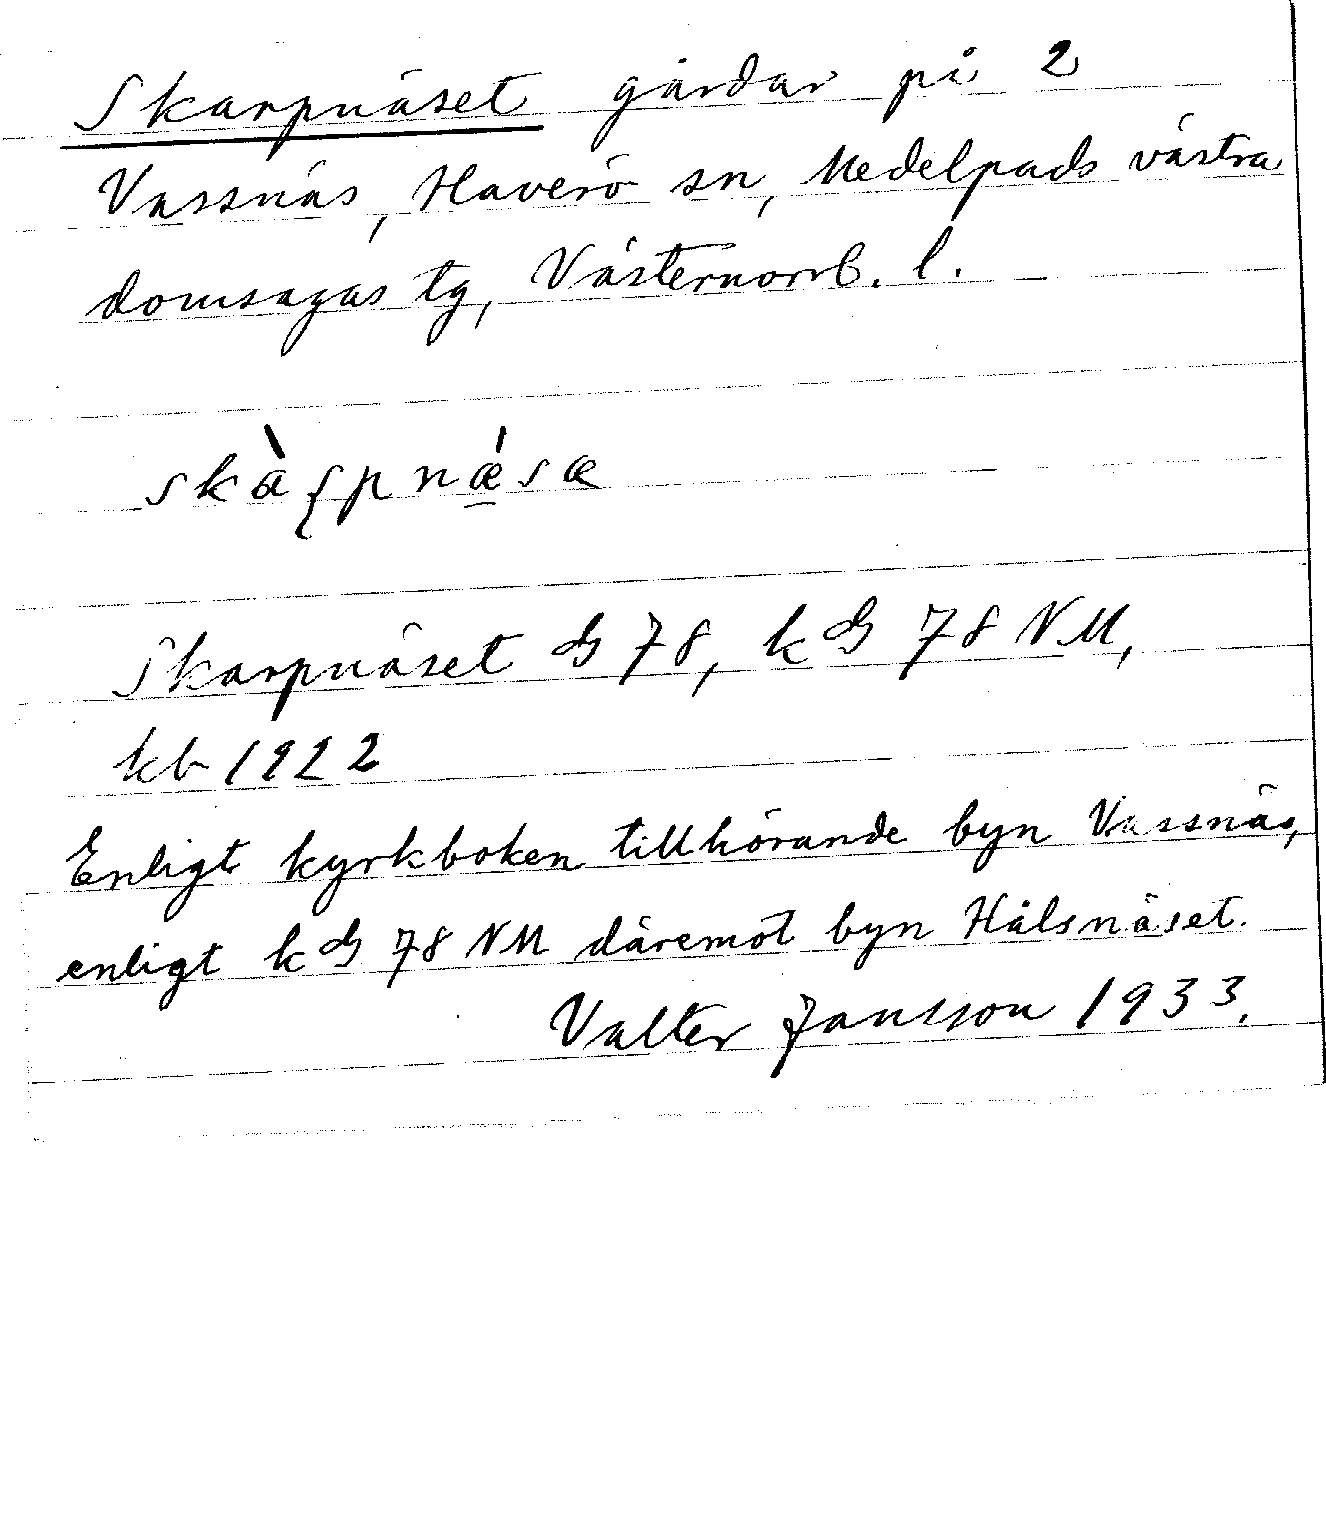 Skarpnäset gårdar på 2
Vassnäs, Haverö sn, Medelpads västra
domsagas tg, Västernorrl. l.
skàʂpnǽsæ
Skarpnäset GS 78, k GS 78 NM,
kb 1922
Enligt kyrkboken tillhörande byn Vassnäs,
enligt k GS 78 NM däremot byn Hålsnäset.
Valter Jansson 1933.